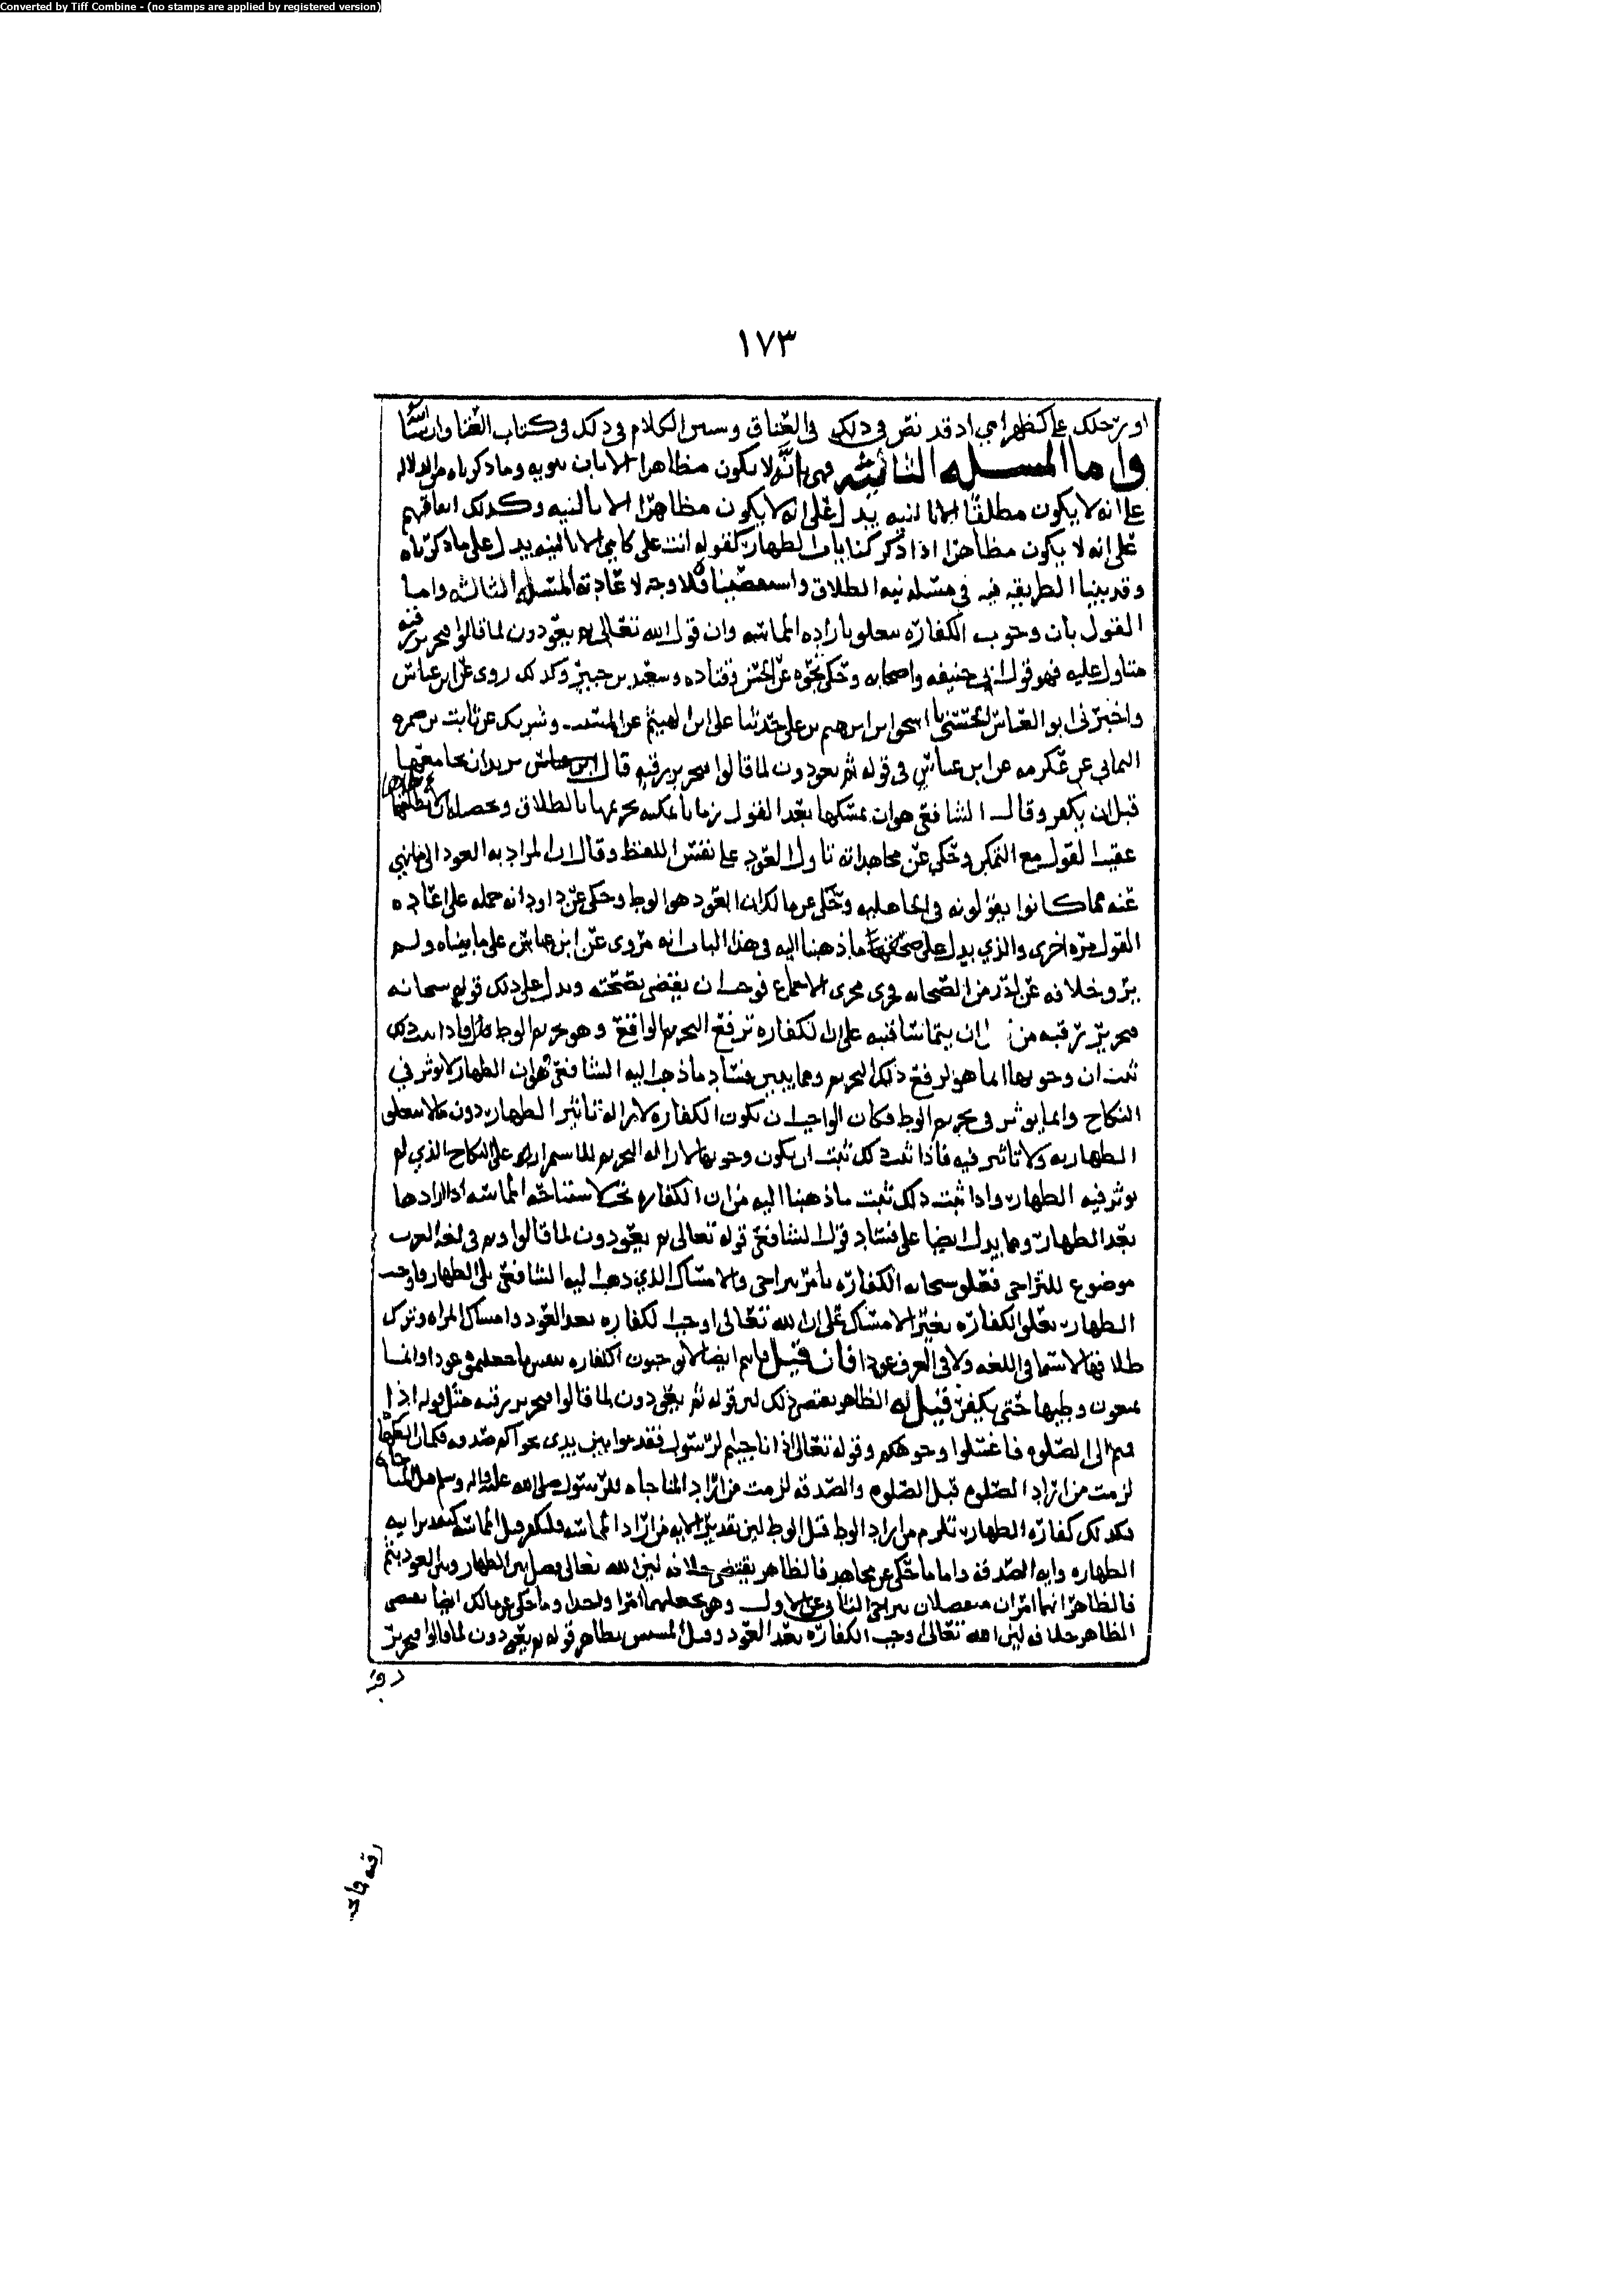 Converted by Tiff Combine - (no stamps are applied by registered version)
١٧٣
او رجلك علي كظهر امي اد قد نص في ذلك في العتاق وسين الكلام في ذلك في كتاب
واما المسله الثانيه فهي انه لا يكون مظاهرا الا بان ينويه وما ذكرناه من الدلاله
على انه لا يكون مطلقا الا بالنيه يدل على انه لا يكون مظاهرا الا بالنيه وكذلك اتفاقهم
على انه لا يكون مظاهرا اذا ذكر كنايات الظهار كقوله انت علي كامي الا بالنيه يدل على ما ذكرناه
وقد بينا الطريقه فيه في مسله نيه الطلاق واستقصينا فلا وجه لاعادته المسله الثالثه واما
القول بان وجوب الكفاره يتعلق باراده المماسه وان قول الله تعالى ثم يعودون لما قالوا فتحرير رقبه
متاول عليه فهو قول ابي حنيفه واصحابه وحكي نحوه عن الحسن وقتاده وسعيد بن جبير وكذلك روى عن ابن عباس
واخبرني ابو العباس الحسني اسحق ابن ابرهيم بن علي حدثنا علي ابن الهيثم عن وشريك عن ثابت بن
اليماني عن عكرمه عن ابن عباس في قوله ثم يعودون لما قالوا فتحرير رقبه قال ابن عباس يريد ان يجامعها
قبل ان يكفر وقال الشافعي هو ان يمسكها بعد القول زمانا يمكنه تحريمها بالطلاق وتحصيله ان لا يطلقها
عقيب القول مع التمكن وحكي عن مجاهد انه تاول العود على نفس اللفظ وقال ان المراد به العود الى ما نهي
عنه مما كانوا يقولونه في الجاهليه وحكي عن مالك ان العود هو الوطي وحكي عن داود انه حمله على اعاده
القول مره اخرى والذي يدل على صحه ما ذهبنا اليه في هذا الباب انه مروي عن ابن عباس على ما بيناه ولم
يرو خلافه عن احد من الصحابه فجرى مجرى الاجماع فوجب ان يقضى بصحته ويدل على ذلك قوله سبحانه
فتحرير رقبه من ان يتماسا فنبه على ان الكفاره ترفع التحريم الواقع وهو تحريم الوطي واذا ثبت ذلك
ثبت ان وجوبها انما هو لرفع ذلك التحريم ومما يبين فساد ما ذهب اليه الشافعي هو ان الظهار لا يوثر في
النكاح وانما يوثر في تحريم الوطي فكان الواجب ان تكون الكفاره لازاله تاثير الظهار دون ما لا يتعلق
الظهار به ولا تاثير فيه فاذا ثبت ذلك ثبت ان يكون وجوبها لازاله التحريم لا للاستمرار على النكاح الذي لم
يوثر فيه الظهار واذا ثبت ذلك ثبت ما ذهبنا اليه من ان الكفاره تجب لاستباحه المماسه اذا ارادها
بعد الظهار ومما يدل ايضا على فساد قول الشافعي قوله تعالى ثم يعودون لما قالوا وثم في لغه العرب
موضوع للتراخي فعلق سبحانه الكفاره بامر يتراخى والامساك الذي ذهب اليه الشافعي يلي الظهار فاوجب
الظهار تعلق الكفاره بغير الامساك على ان الله تعالى اوجب الكفاره بعد العود وامساك المراه وترك
طلاقها لا يسما في اللغه ولا في العرف عودا فان قيل فانتم ايضا لا توجبون الكفاره بنفس ما جعلتموه عودا وانما
تمنعون وطيها حتى يكفر قيل له الظاهر يقتضي ذلك لان قوله ثم يعودون لما قالوا فتحرير رقبه مثل قوله اذا
قمتم الى الصلوه فاغسلوا وجوهكم وقوله تعالى اذا ناجيتم الرسول فقدموا بين يدي نجواكم صدقه فكما ان
لزمت من اراد الصلوه قبل الصلوه والصدقه لزمت من اراد المناجاه للرسول صلى الله عليه واله وسلم قبل
فكذلك كفاره الظهار تلزم من اراد الوطي قبل الوطي لان تقدير الايه من اراد المماسه فليكفر قبل المماسه كتقدير ايه
الطهاره وايه الصدقه واما ما حكي عن مجاهد فالظاهر يقتضي خلافه لان الله تعالى فصل بين الظهار وبين العود بثم
فالظاهر انهما امران منفصلان يتراخى الثاني عن الاول وهو يجعلهما امرا واحدا وما حكي عن مالك ايضا يقتضي
الظاهر خلافه لان الله تعالى اوجب الكفاره بعد العود وقبل المسيس بظاهر قوله ثم يعودون لما قالوا فتحرير